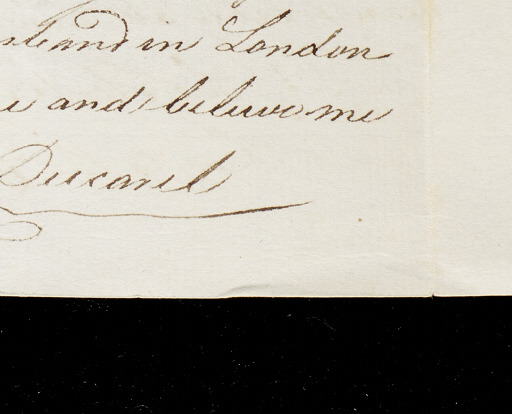 in London
and believe me
Ducarel